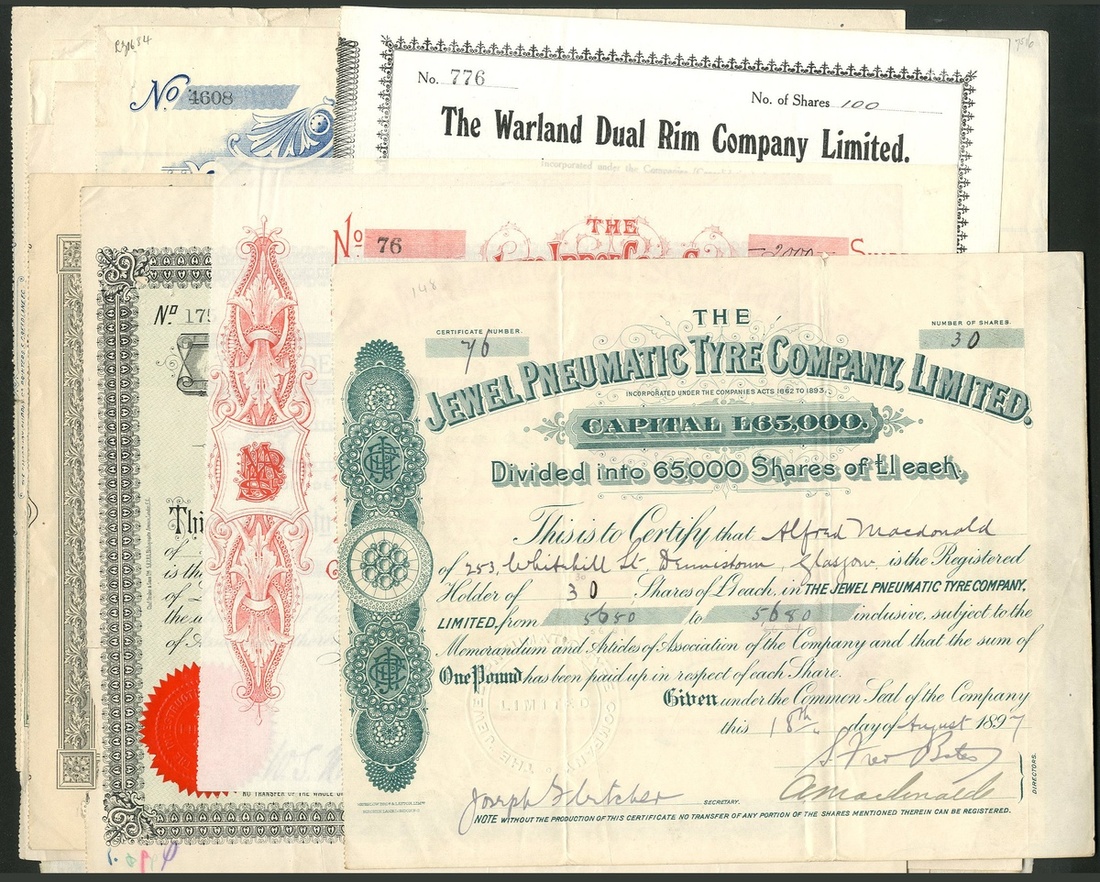 No 4608
No. 776
No. of Shares 100
The Warland Dual Rim Company Limited.
No 76
THE
2000
No 175
148
THE
CERTIFICATE NUMBER.
76
NUMBER OF SHARES.
30
JEWEL PNEUMATIC TYRE COMPANY, LIMITED.
INCORPORATED UNDER THE COMPANIES ACTS 1862 TO 1893.
CAPITAL £65,000.
Divided into 65,000 Shares of £1 each.
This is to Certify that Alfred Macdonald
of 253, Whitehill St, Dennistoun, Glasgow is the Registered
Holder of 30 Shares of £1 each, in THE JEWEL PNEUMATIC TYRE COMPANY,
LIMITED, from 5650 to 5,680 inclusive, subject to the
Memorandum and Articles of Association of the Company and that the sum of
One Pound has been paid up in respect of each Share.
Given under the Common Seal of the Company
this 18th day of August 1897
LIMITED
DIRECTORS.
Joseph Fletcher
SECRETARY.
A Macdonald
NOTE WITHOUT THE PRODUCTION OF THIS CERTIFICATE NO TRANSFER OF ANY PORTION OF THE SHARES MENTIONED THEREIN CAN BE REGISTERED.
NO TRANSFER OF THE WHOLE O